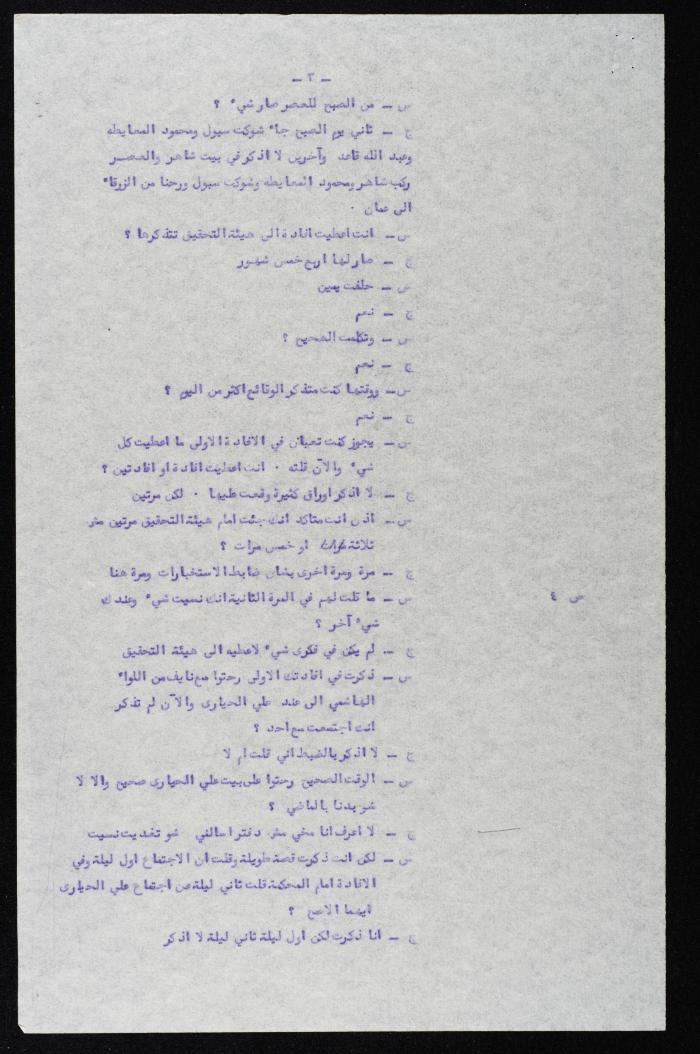 - ٣ -
س - من الصبح للعصر صار شيء ؟
ج - ثاني يوم الصبح جاء شوكت سبول ومحمود المعايطه
وعبد الله قاعد وآخرين لا اذكر في بيت شاهر والعصر
ركب شاهر ومحمود المعايطه وشوكت سبول ورحنا من الزرقاء
الى عمان .
س - انت اعطيت افادة الى هيئة التحقيق تتذكرها ؟
ج - صار لها اربع خمس شهور
س - حلفت يمين
ج - نعم
س - وتكلمت الصحيح ؟
ج - نعم
س - ووقتها كنت متذكر الوقائع اكثر من اليوم ؟
ج - نعم
س - يجوز كنت تعبان في الافادة الاولى ما اعطيت كل
شيء والآن قلته . انت اعطيت افادة او افادتين ؟
ج - لا اذكر اوراق كثيرة وقعت عليها . لكن مرتين
س - اذن انت متاكد انك جئت امام هيئة التحقيق مرتين مش
ثلاثة او خمس مرات ؟
ج - مرة ومرة اخرى بشان ضابط الاستخبارات ومرة هنا
س - ما قلت لهم في المرة الثانية انك نسيت شيء وعندك
شيء آخر ؟
ص ٤
ج - لم يكن في فكرى شيء لاعطيه الى هيئة التحقيق
س - ذكرت في افادتك الاولى رحتوا مع نايف من اللواء
الهاشمي الى عند علي الحيارى والآن لم تذكر
انت اجتمعت مع احد ؟
ج - لا اذكر بالضبط اني قلت ام لا
س - الوقت الصحيح رحتوا على بيت علي الحيارى صحيح والا لا
شو بدنا بالماضي ؟
ج - لا اعرف انا مخي مش دفتر اسالني شو تغديت نسيت
س - لكن انت ذكرت قصة طويلة وقلت ان الاجتماع اول ليلة وفي
الافادة امام المحكمة قلت ثاني ليلة عن اجتماع علي الحيارى
ايهما الاصح ؟
ج - انا ذكرت لكن اول ليلة ثاني ليلة لا اذكر